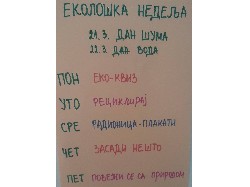 ЕКОЛОШКА НЕДЕЉА
21.3. ДАН ШУМА
22.3. ДАН ВОДА
ПОН ЕКО-КВИЗ
УТО РЕЦИКЛИРАЈ
СРЕ РАДИОНИЦА-ПЛАКАТИ
ЧЕТ ЗАСАДИ НЕШТО
ПЕТ ПОВЕЖЕМ СЕ СА ПРИРОДОМ